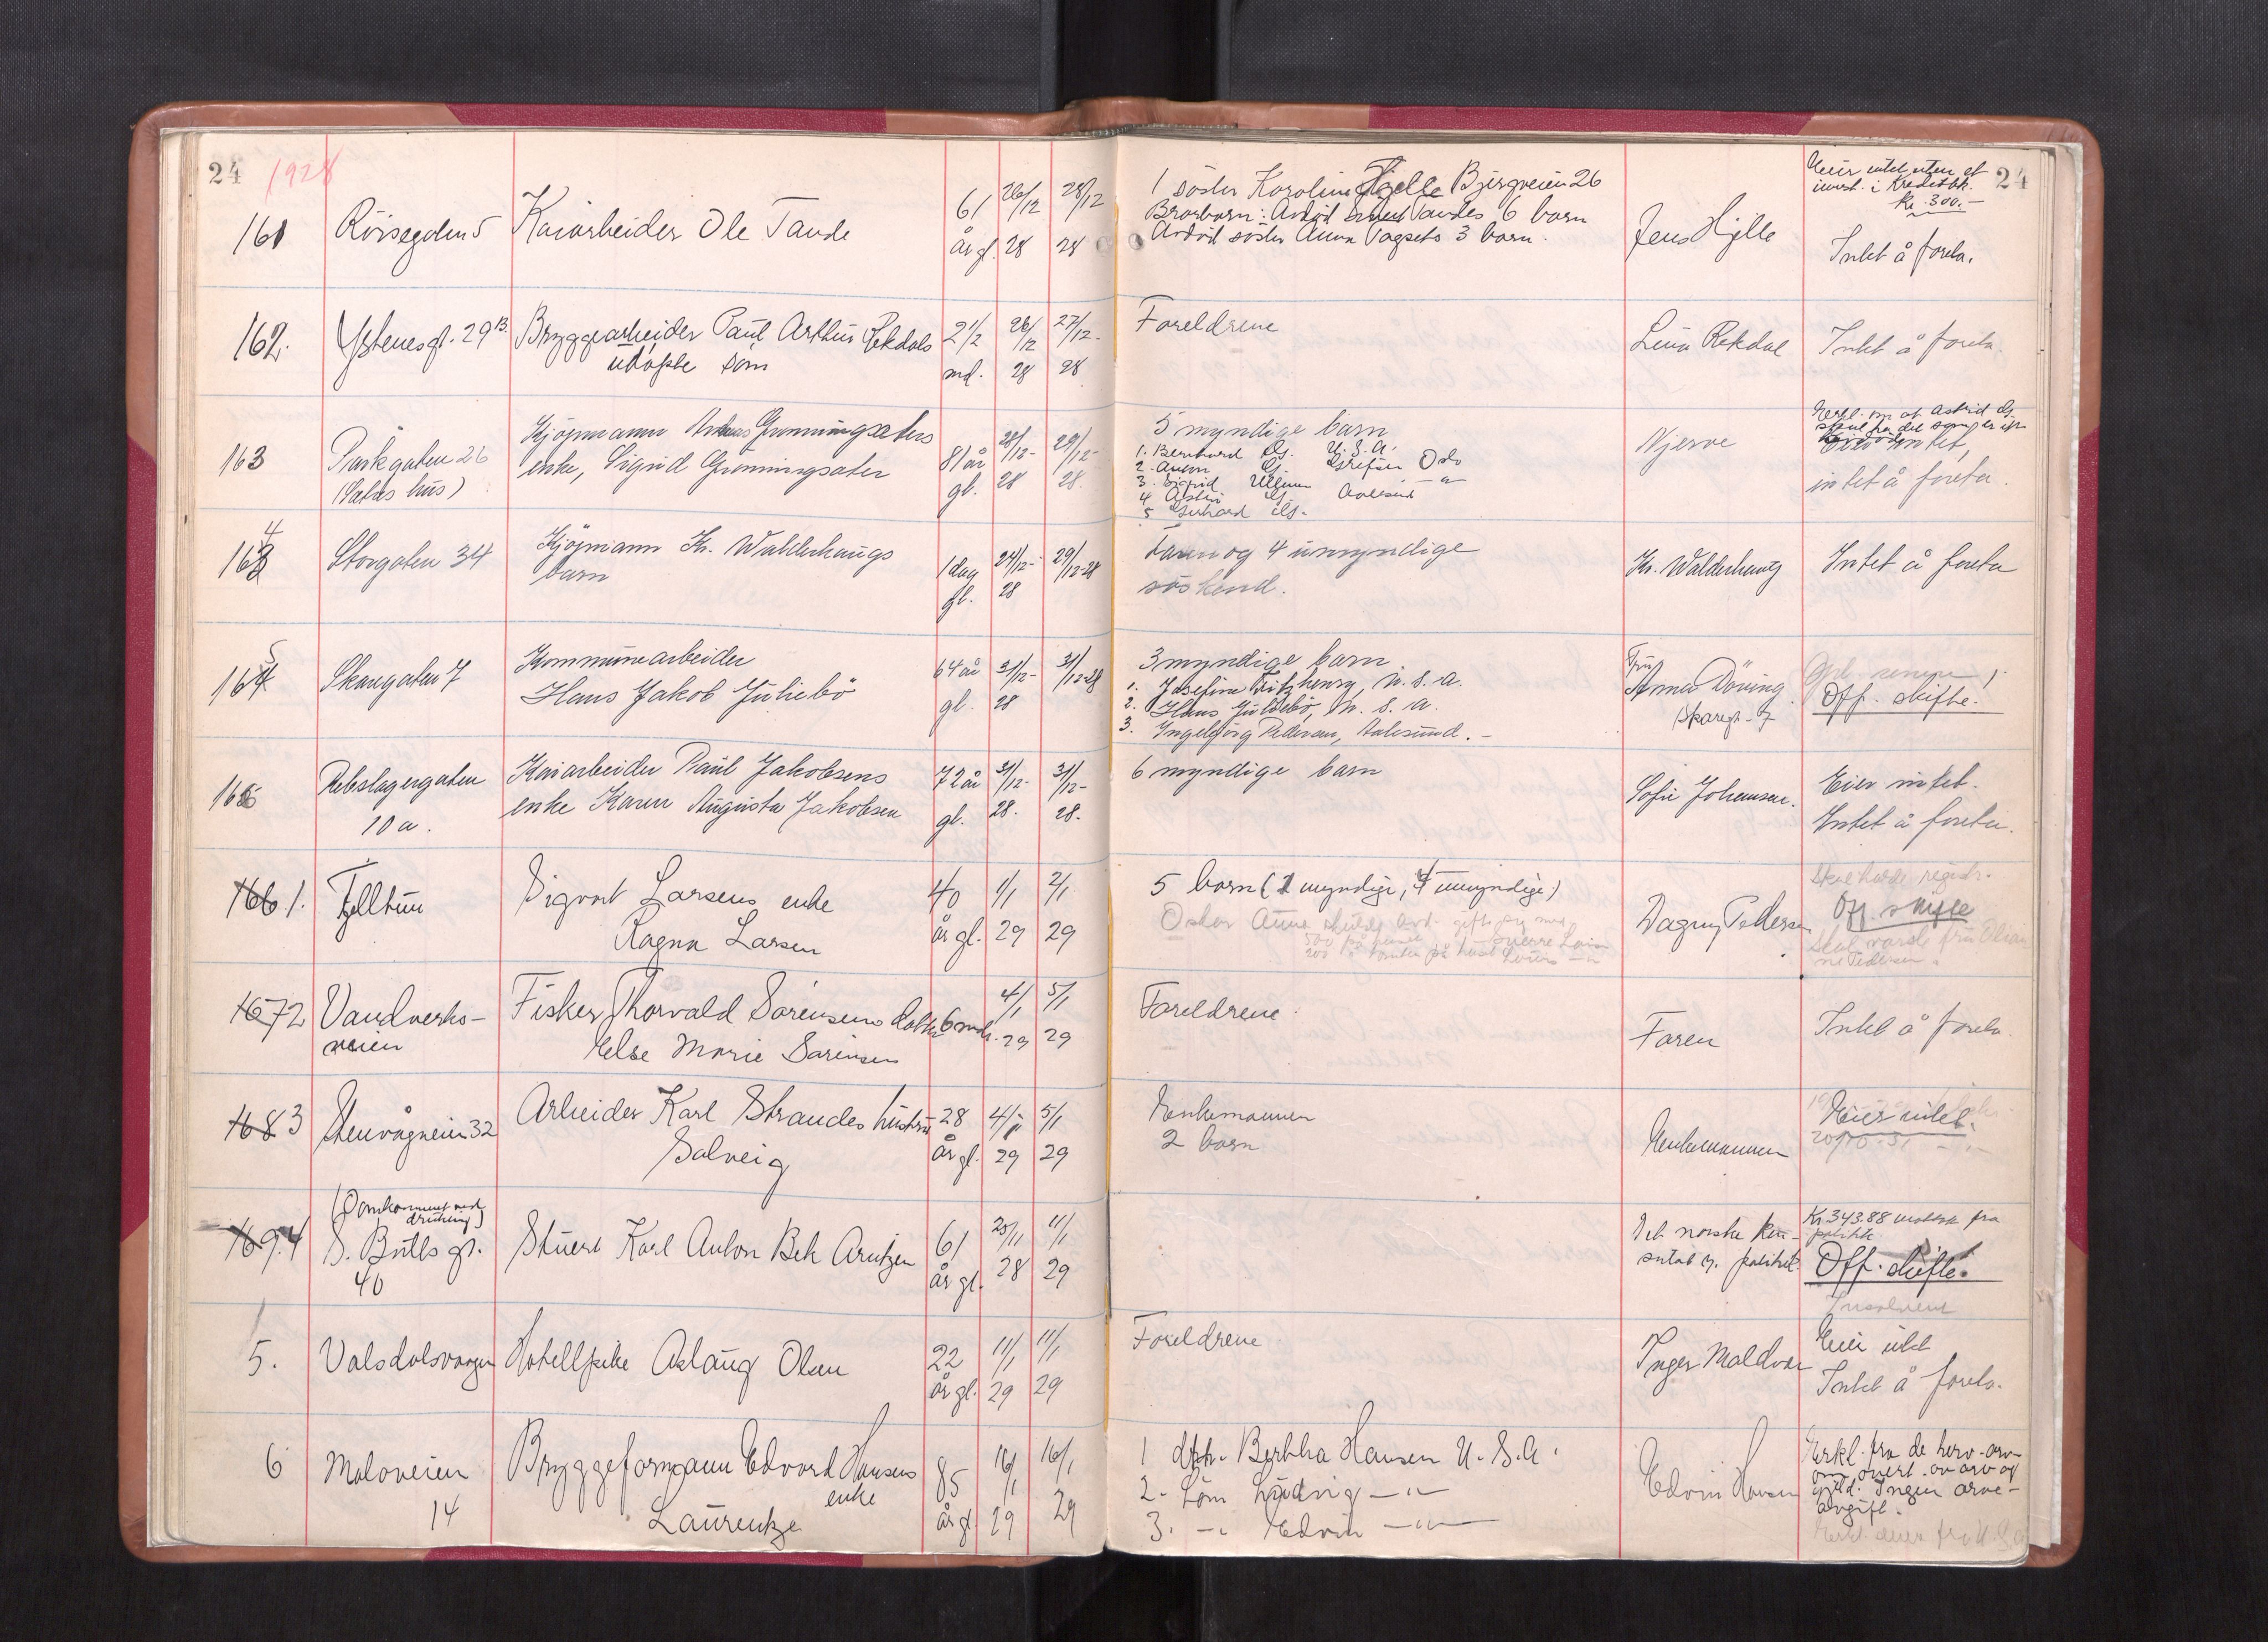 24 1928
161 Rörsegaten 5 Kaiarbeider Ole Tande 61 år gl. 26/12 28 28/12 28
1 söster Karoline Hjelle Bjergveien 26
Brorbarn: Avdød Tandes 6 barn
Avdöd söster Anna Vagsets 3 barn.
Jens Hjelle
Eier intet uten et
innsk. i Kreditbk.
Kr. 300.-
24
Intet å foreta.
162. Ystenesgt. 29 B. Bryggearbeider Paul Arthur Rekdals
udöpte sön
2 1/2 md. 26/12 28 27/12- 28
Foreldrene
Lina Rekdal
Intet å foreta
163 Parkgaten 26
(Satres hus)
Kjöpmann Grønningsæters
enke, Sigrid Grønningsæter
81 år gl. 28/12- 28 29/12- 28.
5 myndige barn
1. Bernhard G. U.S.A.
2. Anton G. Grefsen Oslo
3. Sigrid Ullmann -"-
4 G. Aalesund
5 Gerhard G.
Njerve
Erkl. om at Astrid G.
intet,
intet å foreta.
164 Storgaten 34 Kjöpmann Kr. Walderhaugs
barn
1 dag gl. 24/12- 28 29/12-28
Faren og 4 umyndige
söskend.
Kr. Walderhaug
Intet å foreta
165 Skaregaten 7 Kommunearbeider
Hans Jakob Juliebö
64 år gl. 31/12- 28 31/12-28
3 myndige barn.
1. Josefine Fitzhenry, U.S.A.
2. Hans Juliebö, U.S.A.
3. Ingebjörg Pedersen, Aalesund.-
Fru
Anna Döving
Skaregt. 7
Off. skifte.
166 Rebslagergaten
10 a.
Kaiarbeider Paul Jakobsens
enke Karen Augusta Jakobsen
72 år gl. 31/12- 28. 31/12- 28.
6 myndige barn
Sofie Johansen.
Eier intet.
Intet å foreta.
166 1. Fjelltun Sigvart Larsens enke
Ragna Larsen
40 år gl. 1/1 29 2/1 29
5 barn (1 myndige, 4 umyndige)
Oskar Anna
Dagny Pedersen
Off. skifte
167 2 Vandverks-
veien
Fisker Thorvald Sörensens datter
Else Marie Sörensen
6 mdr. 4/1 29 5/1 29
Foreldrene
Faren
Intet å foreta
168 3 Stenvågveien 32 Arbeider Karl Strandes hustru
Solveig
28 år gl. 4/1 29 5/1 29
Enkemannen
2 barn
Enkemannen
Eier intet.
169. 4 (Omkommet ved
drukning)
S. Bulls gt.
40
Stuert Karl Anton Bek Arntzen
61 år gl. 25/11 28 11/1 29
Det norske kon-
sulat og politiet.
Kr. 343.88 mottatt fra
politik.
Off. skifte.
Insolvent
5. Valsdalsvaagen Hotellpike Aslaug Olsen
22 år gl. 11/1 29 11/1 29
Foreldrene
Inger Maldvær
Eier intet
Intet å foreta.
6 Moloveien
14
Bryggeformann Edvard Hansens
enke
Laurentze
85 år gl. 16/1 29 16/1 29
1 dttr. Berthha Hansen U.S.A.
2- Sön Ludvig -"-
3. -"- Edvin -"-
Edvin Hansen
Erkl. fra de herv. arv.
om overt. av arv og
gjeld. Ingen arve-
avgift.